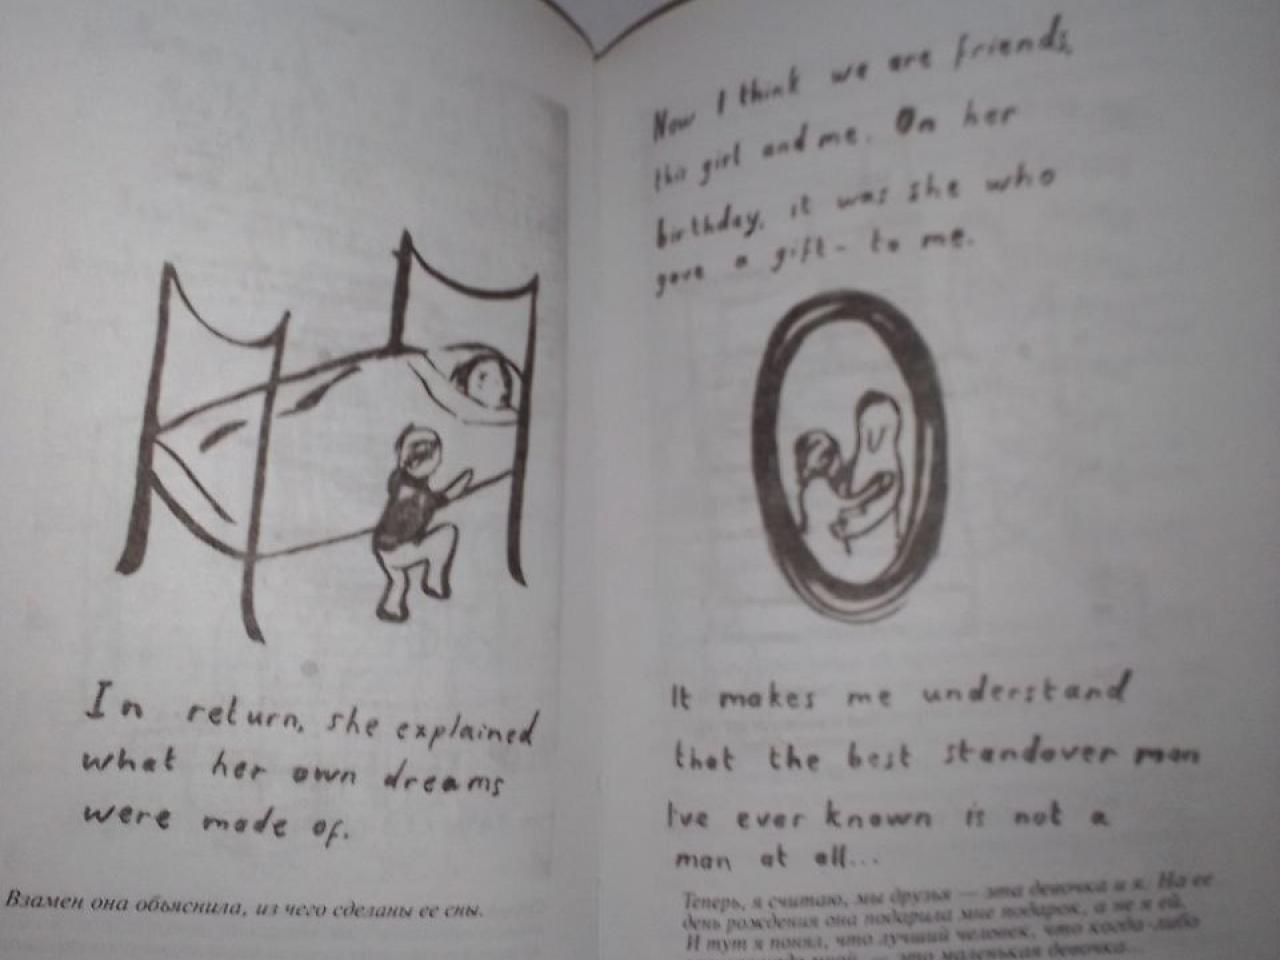 In return, she explained
what her own dreams
were made of.
Взамен она объяснила, из чего сделаны ее сны.
Now I think we are friends,
this girl and me. On her
birthday, it was she who
gave a gift - to me.
It makes me understand
that the best standover man
I've ever known is not a
man at all...
Теперь, я считаю, мы друзья — эта девочка и я. На ее
день рождения она подарила мне подарок, а не я ей.
И тут я понял, что лучший человек, что когда-либо
— это маленькая девочка...